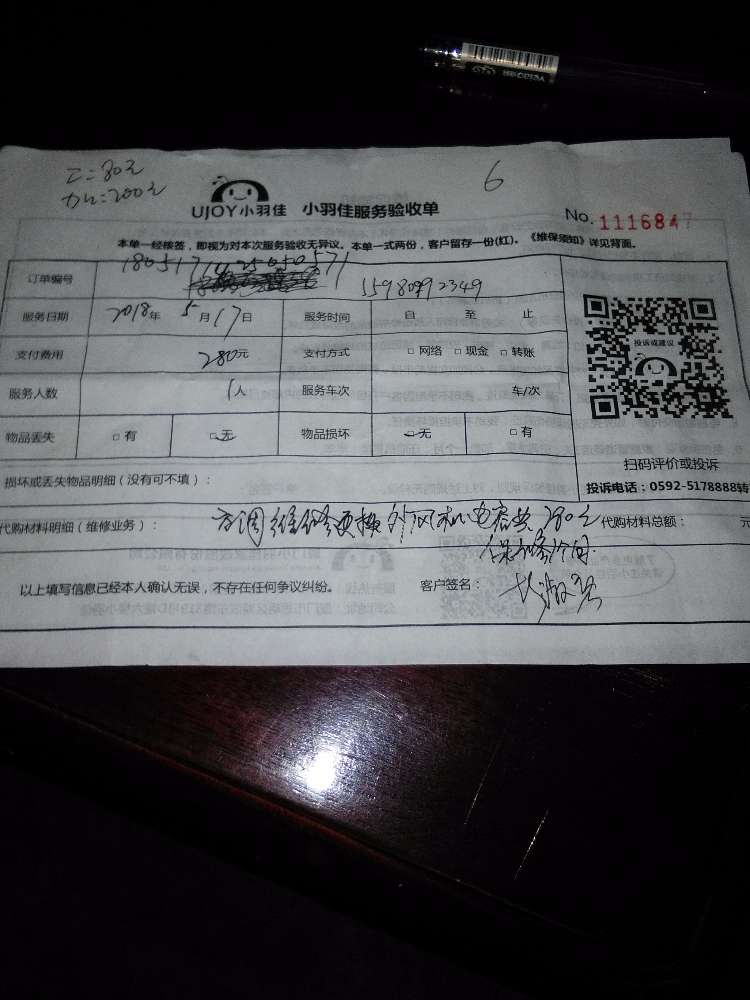 工=80元
力4=200元
6
UJOY小羽佳 小羽佳服务验收单
No. 1116847
本单一经核签，即视为对本次服务验收无异议。本单一式两份，客户留存一份(红)。《维保须知》详见背面。
订单编号
15980992349
服务日期 2018年 5月17日 服务时间 自 至 止
支付费用 280元 支付方式 □网络 □现金 □转账
服务人数 1人 服务车次 车/次
物品丢失 □有 □无 物品损坏 □无 □有
投诉或建议
扫码评价或投诉
投诉电话：0592-5178888转
损坏或丢失物品明细（没有可不填）：
代购材料明细（维修业务）： 空调维修更换外风机电容共280元 代购材料总额： 元
以上填写信息已经本人确认无误，不存在任何争议纠纷。 客户签名：